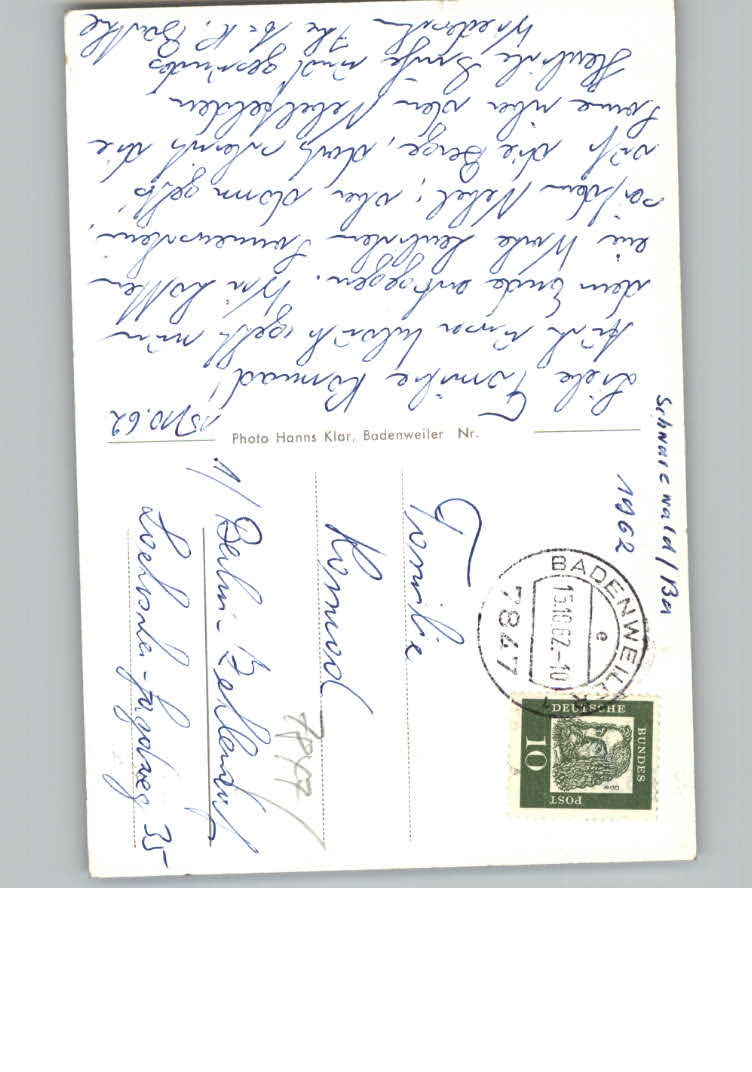 15/10.62
Liebe Familie Konrad!
Auch unser Urlaub geht nun
dem Ende entgegen. Wir hatten
ein Woche herrlichen Sonnenschein,
Nebel, aber dann geht's
auf die Berge, dort scheint die
Sonne über den Nebelfeldern
Herzliche Grüße und gesundes
Wiedersehn Ihr
Photo Hanns Klar, Badenweiler Nr.
Familie
Konrad
1/ Berlin-Zehlendorf
35
7847
Schwarzwald/Ba
1962
BADENWEILER
15.10.62.-10
e
7847
DEUTSCHE
BUNDES
POST
10
Dürer